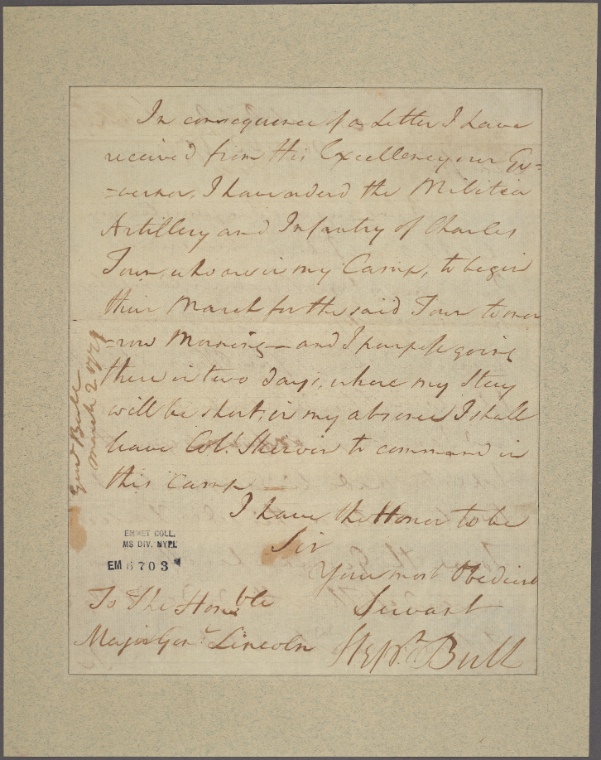 In consequence of a Letter I have
received from His Excellency our Go=
=vernor, I have orderd the Militia
Artillery and Infantry of Charles
Town, who are in my Camp, to begin
their March for the said Town to mor
=row Morning — and I purpose going
there in two days, where my Stay
will be short; in my absence I shall
leave Col.
to command in
this Camp —
I have the Honor to be
Sir
Your most Obedient
Servant
Steph. Bull
To The Honble
Major Genl. Lincoln
Genl Bull
March 2 1779
EMMET COLL.
MS DIV. NYPL
EM 6703